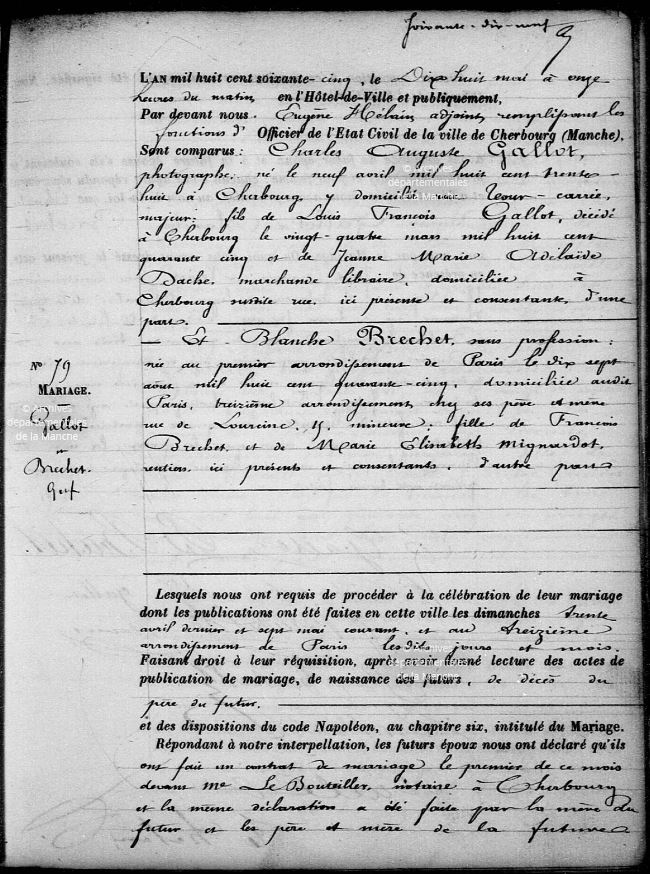 Soixante-dix-neuf
L'AN mil huit cent soixante-cinq, le Dix huit mai à onze
heures du matin en l'Hôtel-de-Ville et publiquement,
Par devant nous. Eugène Hélain, adjoint, remplissant les
fonctions d' Officier de l'Etat Civil de la ville de Cherbourg (Manche).
Sont comparus : Charles Auguste Gallot,
photographe, né le neuf avril mil huit cent trente-
huit à Cherbourg, y domicilié, rue Tour-carrée,
majeur; fils de Louis François Gallot, décédé
à Cherbourg le vingt-quatre mars mil huit cent
quarante cinq et de Jeanne Marie Adélaïde
Dache, marchande libraire, domiciliée à
Cherbourg susdite rue, ici présente et consentante, d'une
part.
Et Blanche Brechet, sans profession;
née au premier arrondissement de Paris le dix sept
août mil huit cent quarante-cinq, domiciliée audit
Paris, treizième arrondissement, chez ses père et mère
rue de Lourcine, 15, mineure; fille de François
Brechet, et de Marie Elisabeth Mignardot,
rentiers, ici présents et consentants, d'autre part
No 79
MARIAGE.
Gallot
et
Brechet.
© Archives
départementales
de la Manche
Lesquels nous ont requis de procéder à la célébration de leur mariage
dont les publications ont été faites en cette ville les dimanches trente
avril dernier et sept mai courant, et au treizième
arrondissement de Paris lesdits jours et mois.
Faisant droit à leur réquisition, après avoir donné lecture des actes de
publication de mariage, de naissance des futurs, de décès du
père du futur.
et des dispositions du code Napoléon, au chapitre six, intitulé du Mariage.
Répondant à notre interpellation, les futurs époux nous ont déclaré qu'ils
ont fait un contrat de mariage le premier de ce mois
devant Me Le Bouteiller, notaire à Cherbourg
et la même déclaration a été faite par la mère du
futur et les père et mère de la future